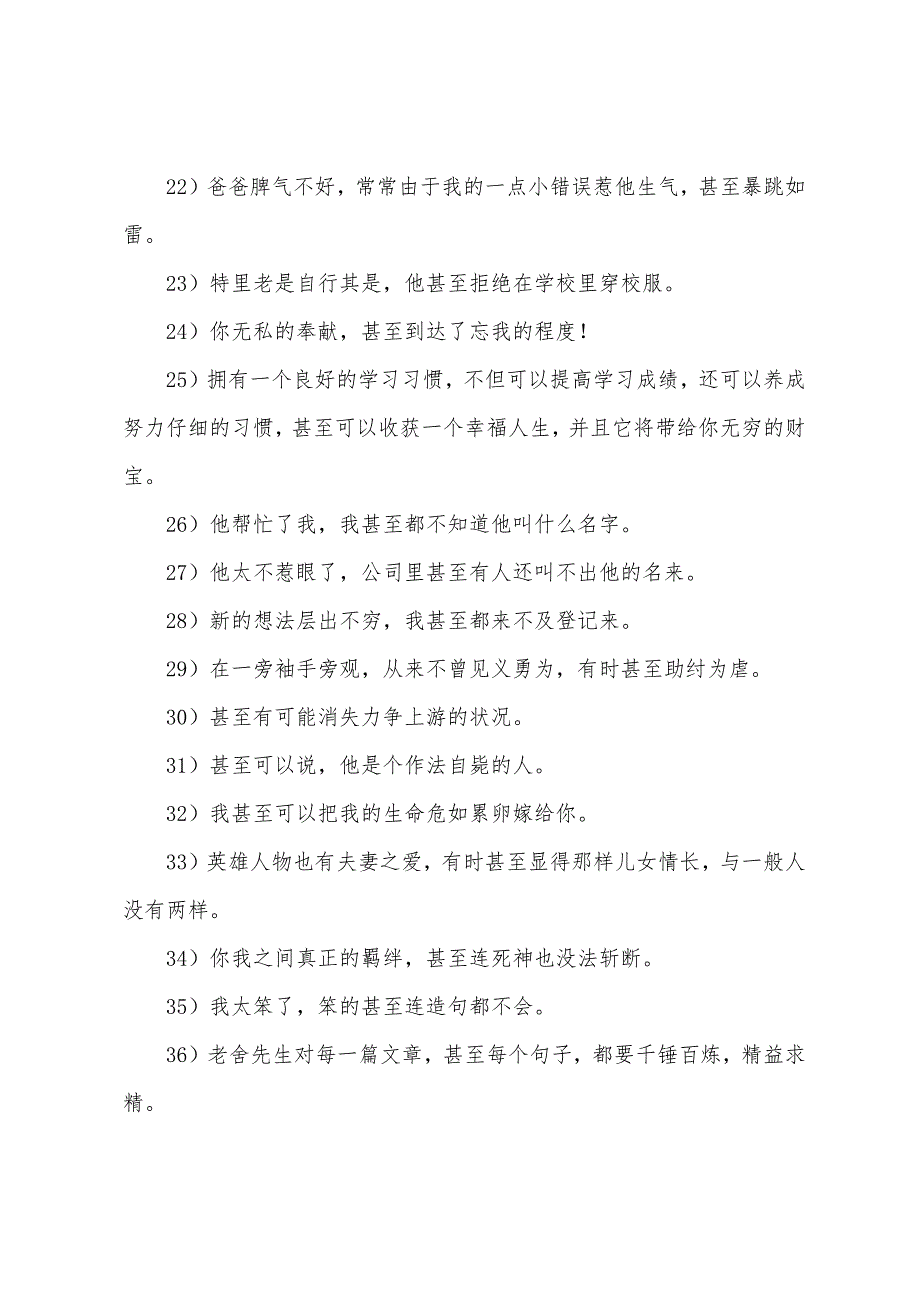 22）爸爸脾气不好，常常由于我的一点小错误惹他生气，甚至暴跳如
雷。
23）特里老是自行其是，他甚至拒绝在学校里穿校服。
24）你无私的奉献，甚至到达了忘我的程度！
25）拥有一个良好的学习习惯，不但可以提高学习成绩，还可以养成
努力仔细的习惯，甚至可以收获一个幸福人生，并且它将带给你无穷的财
宝。
26）他帮忙了我，我甚至都不知道他叫什么名字。
27）他太不惹眼了，公司里甚至有人还叫不出他的名来。
28）新的想法层出不穷，我甚至都来不及登记来。
29）在一旁袖手旁观，从来不曾见义勇为，有时甚至助纣为虐。
30）甚至有可能消失力争上游的状况。
31）甚至可以说，他是个作法自毙的人。
32）我甚至可以把我的生命危如累卵嫁给你。
33）英雄人物也有夫妻之爱，有时甚至显得那样儿女情长，与一般人
没有两样。
34）你我之间真正的羁绊，甚至连死神也没法斩断。
35）我太笨了，笨的甚至连造句都不会。
36）老舍先生对每一篇文章，甚至每个句子，都要千锤百炼，精益求
精。